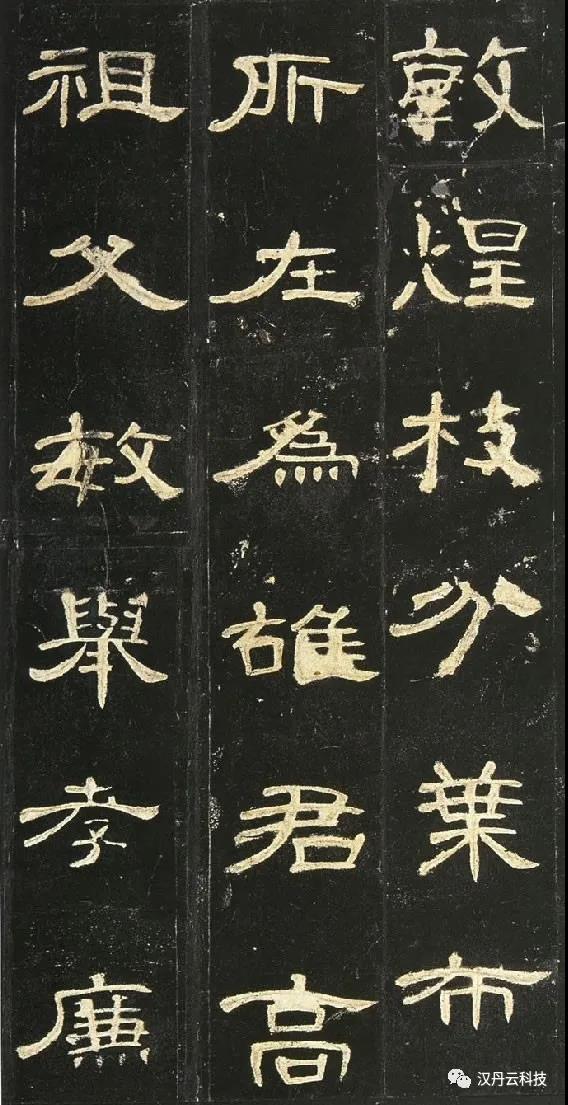 敦煌枝分葉布
所在為雄君高
祖父敏舉孝廉
汉丹云科技